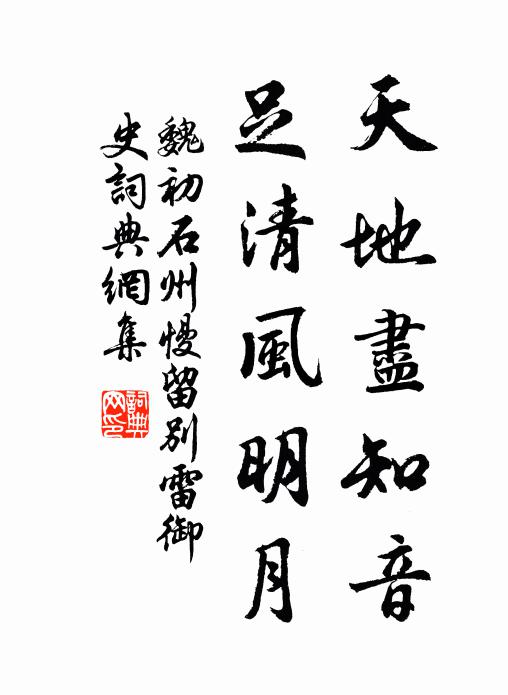 天地盡知音
足清風明月
魏初石州慢留別雷御
史詞典網集
詞典
网印